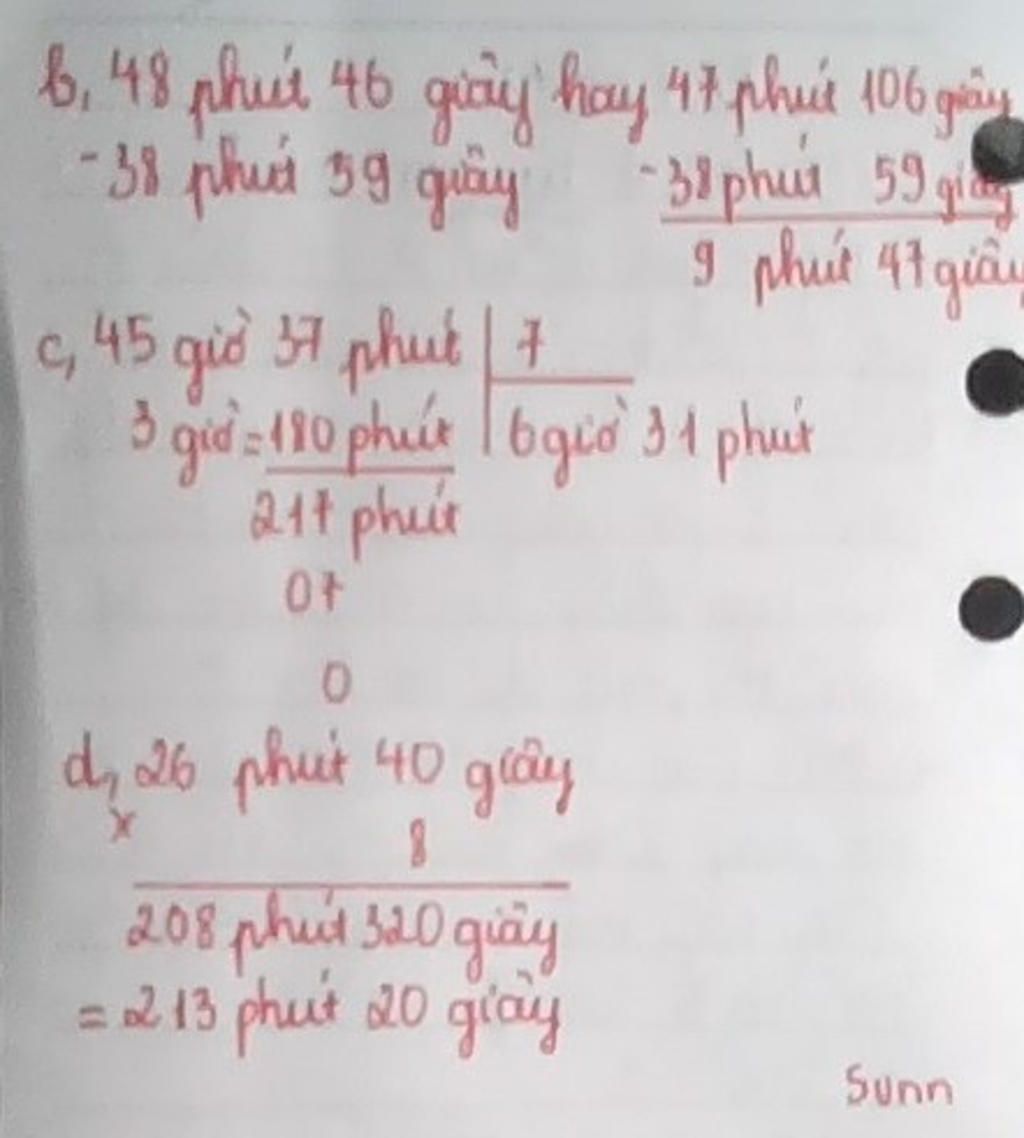 b, 48 phút 46 giây hay 47 phút 106 giây
- 38 phút 59 giây - 38 phút 59 giây
9 phút 47 giây
c, 45 giờ 37 phút 7
3 giờ = 180 phút 6 giờ 31 phút
217 phút
07
0
d, 26 phút 40 giây
x 8
208 phút 320 giây
= 213 phút 20 giây
Sunn